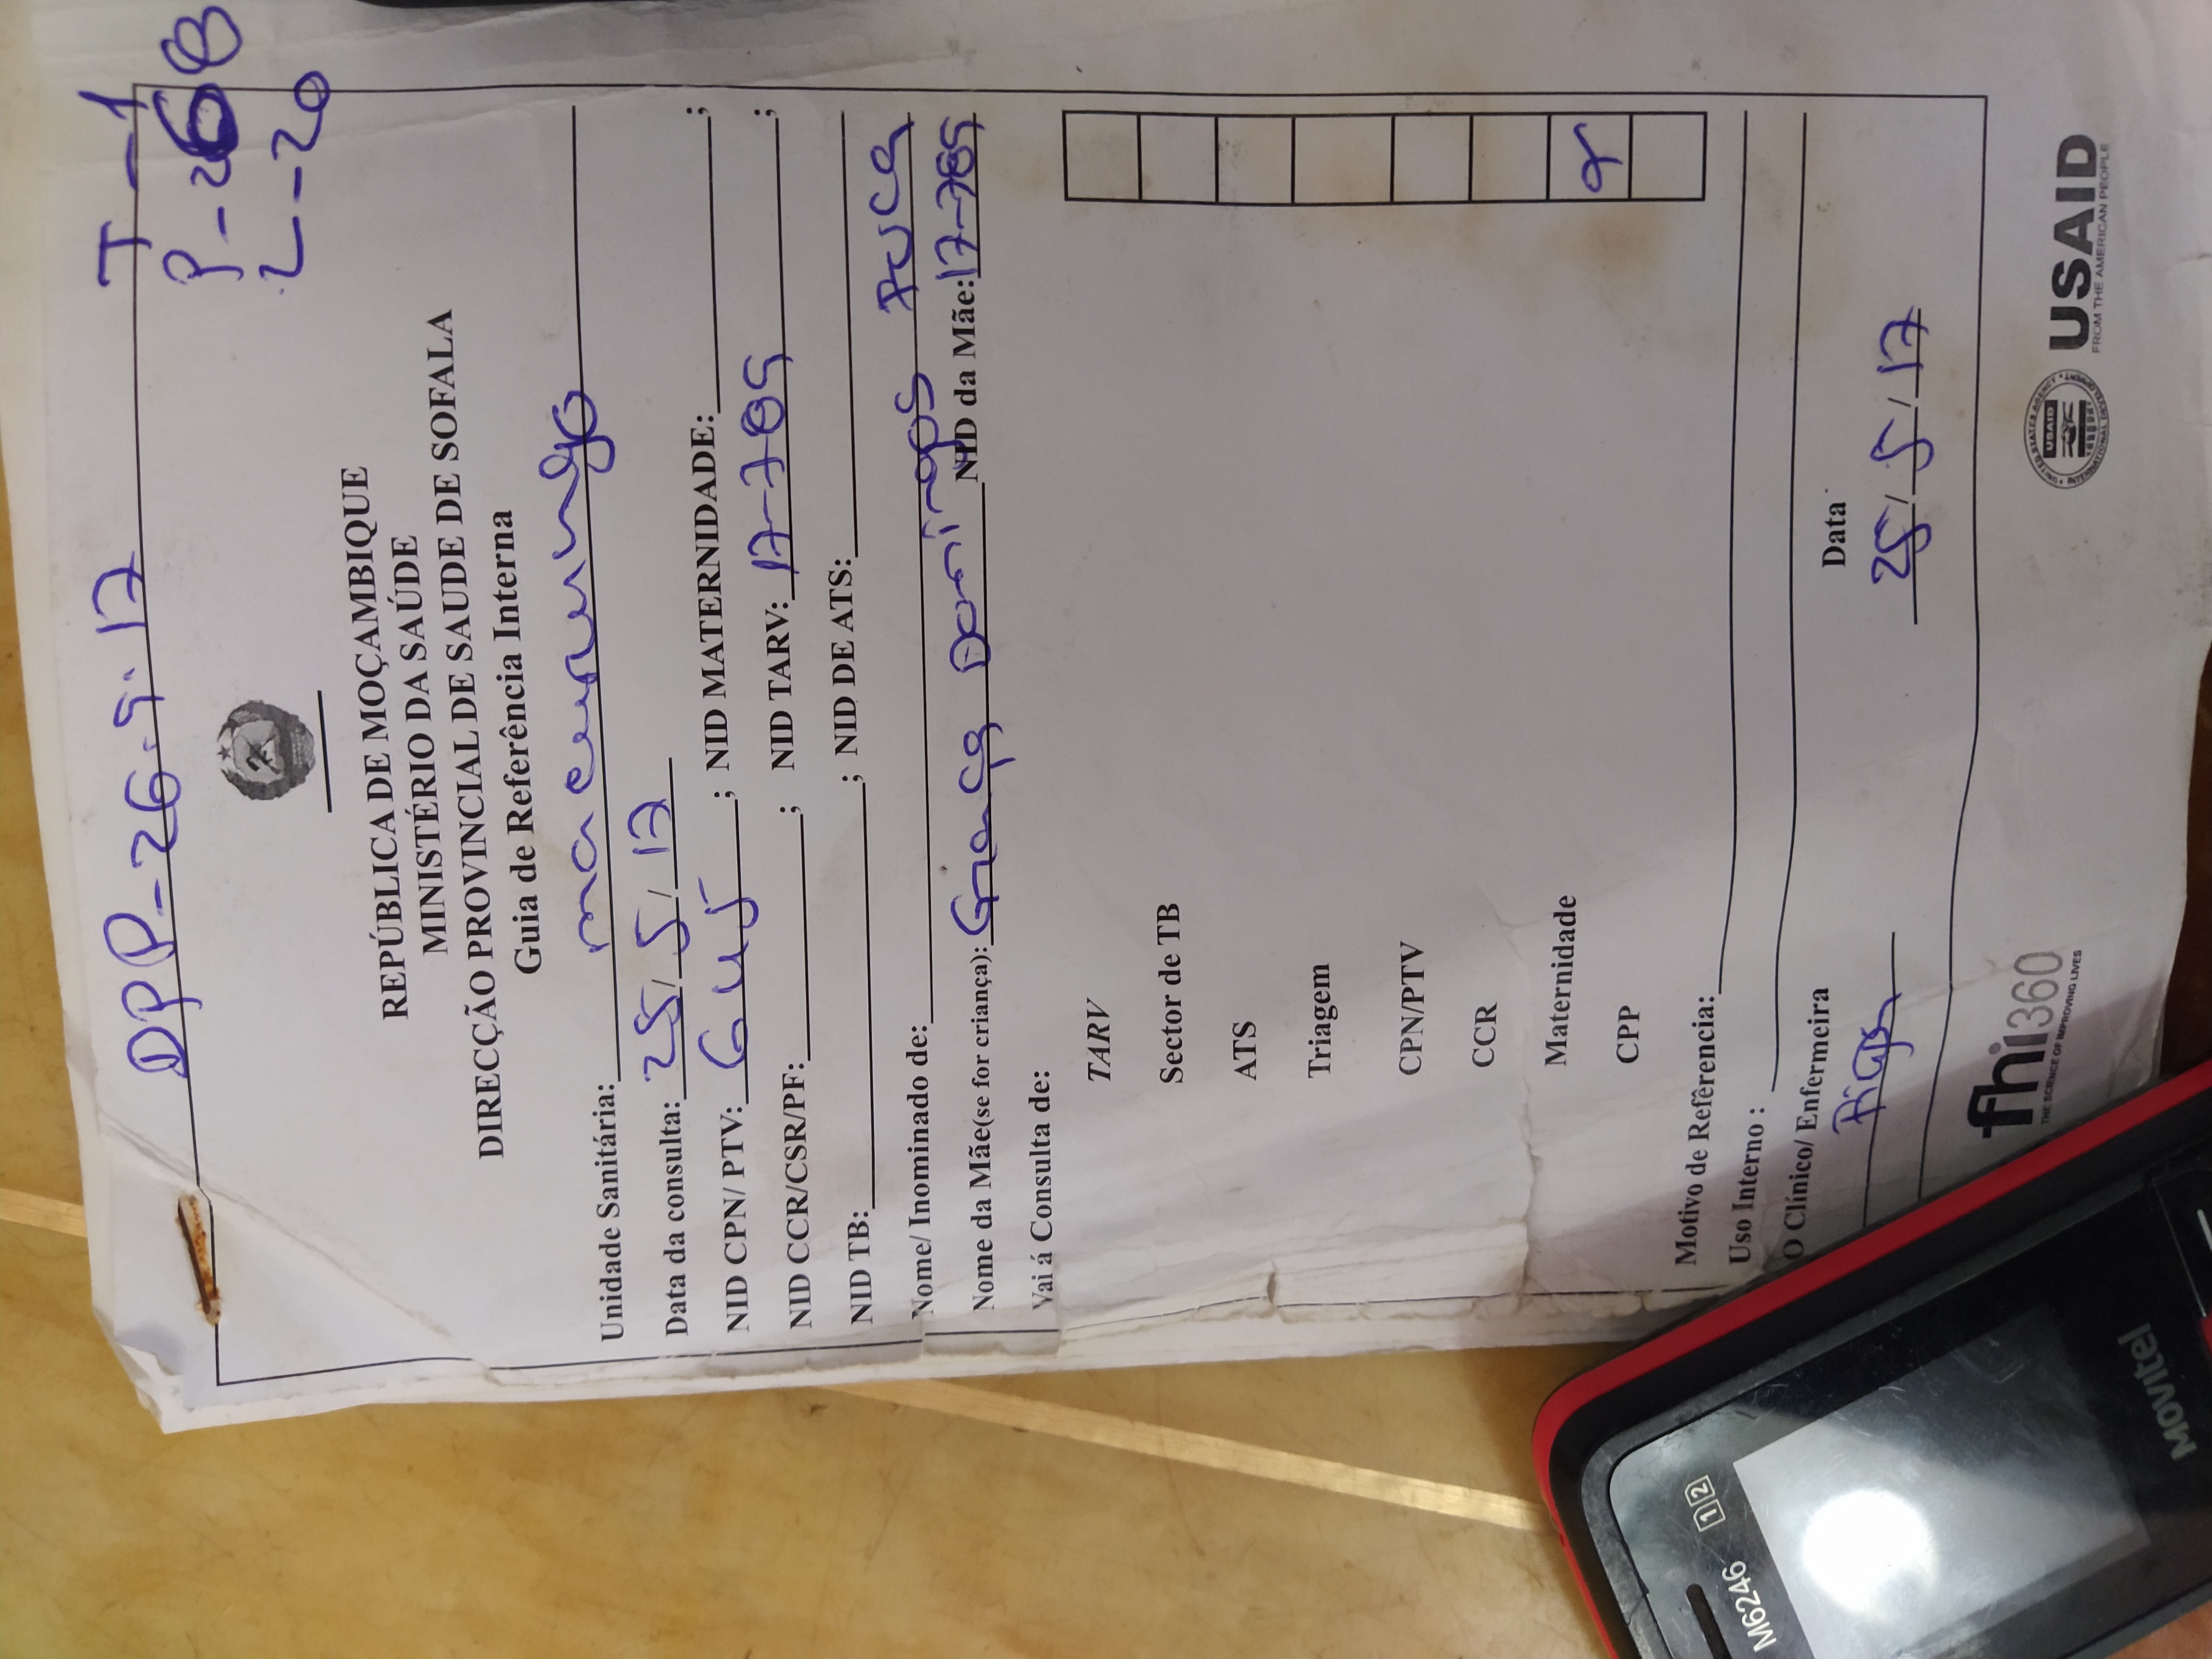 DPP-26.5.17
T-1
P-268
2--20
REPÚBLICA DE MOÇAMBIQUE
MINISTÉRIO DA SAÚDE
DIRECÇÃO PROVINCIAL DE SAUDE DE SOFALA
Guia de Referência Interna
Unidade Sanitária:
Data da consulta: 25/5/17
NID CPN/ PTV: 645; NID MATERNIDADE: ;
NID CCR/CSR/PF: ; NID TARV: 17-789;
NID TB: ; NID DE ATS:
Nome/ Inominado de:
Nome da Mãe(se for criança): Domingos NID da Mãe: 17-789
Vai á Consulta de:
TARV
Sector de TB
ATS
Triagem
CPN/PTV
CCR
Maternidade
CPP
Motivo de Refêrencia:
Uso Interno :
O Clínico/ Enfermeira
Data
25/5/17
fhi360
THE SCIENCE OF IMPROVING LIVES
UNITED STATES AGENCY
USAID
INTERNATIONAL DEVELOPMENT
USAID
FROM THE AMERICAN PEOPLE
M6246
1 2
MOVITEL